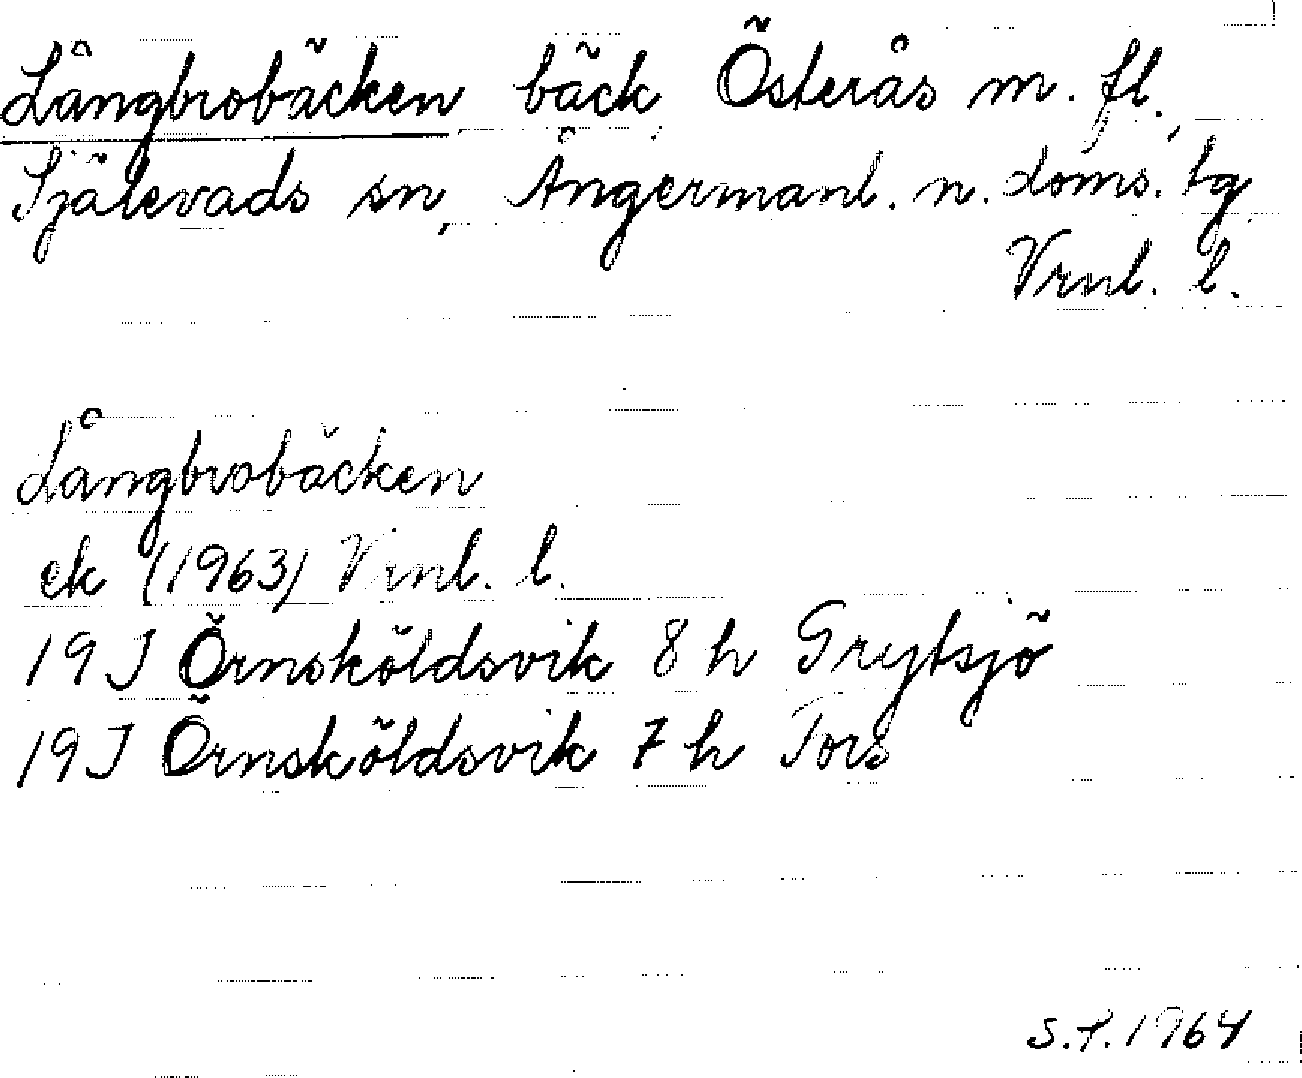 Långbrobäcken bäck, Österås m. fl.,
Själevads sn, Ångermanl. n. doms. tg
Vrnl. l.
Långbrobäcken
ek (1963) Vrnl. l.
19 J Örnsköldsvik 8 h Grytsjö
19 J Örnsköldsvik 7 h Tors
S.P. 1964